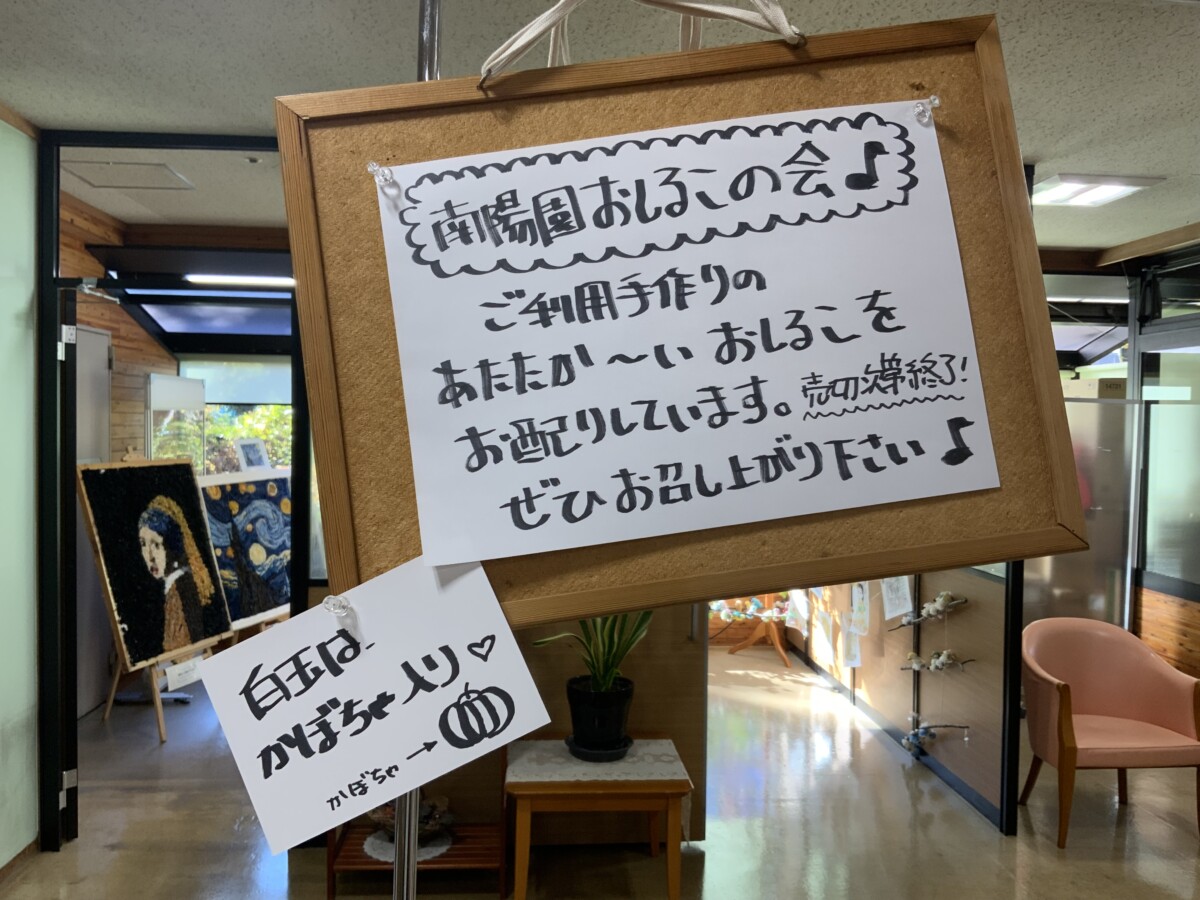 南陽園おしるこの会♪
ご利用手作りの
あたたか〜い おしるこを
お配りしています。売切次第終了!
ぜひお召し上がり下さい♪
白玉は、
かぼちゃ入り♡
かぼちゃ→